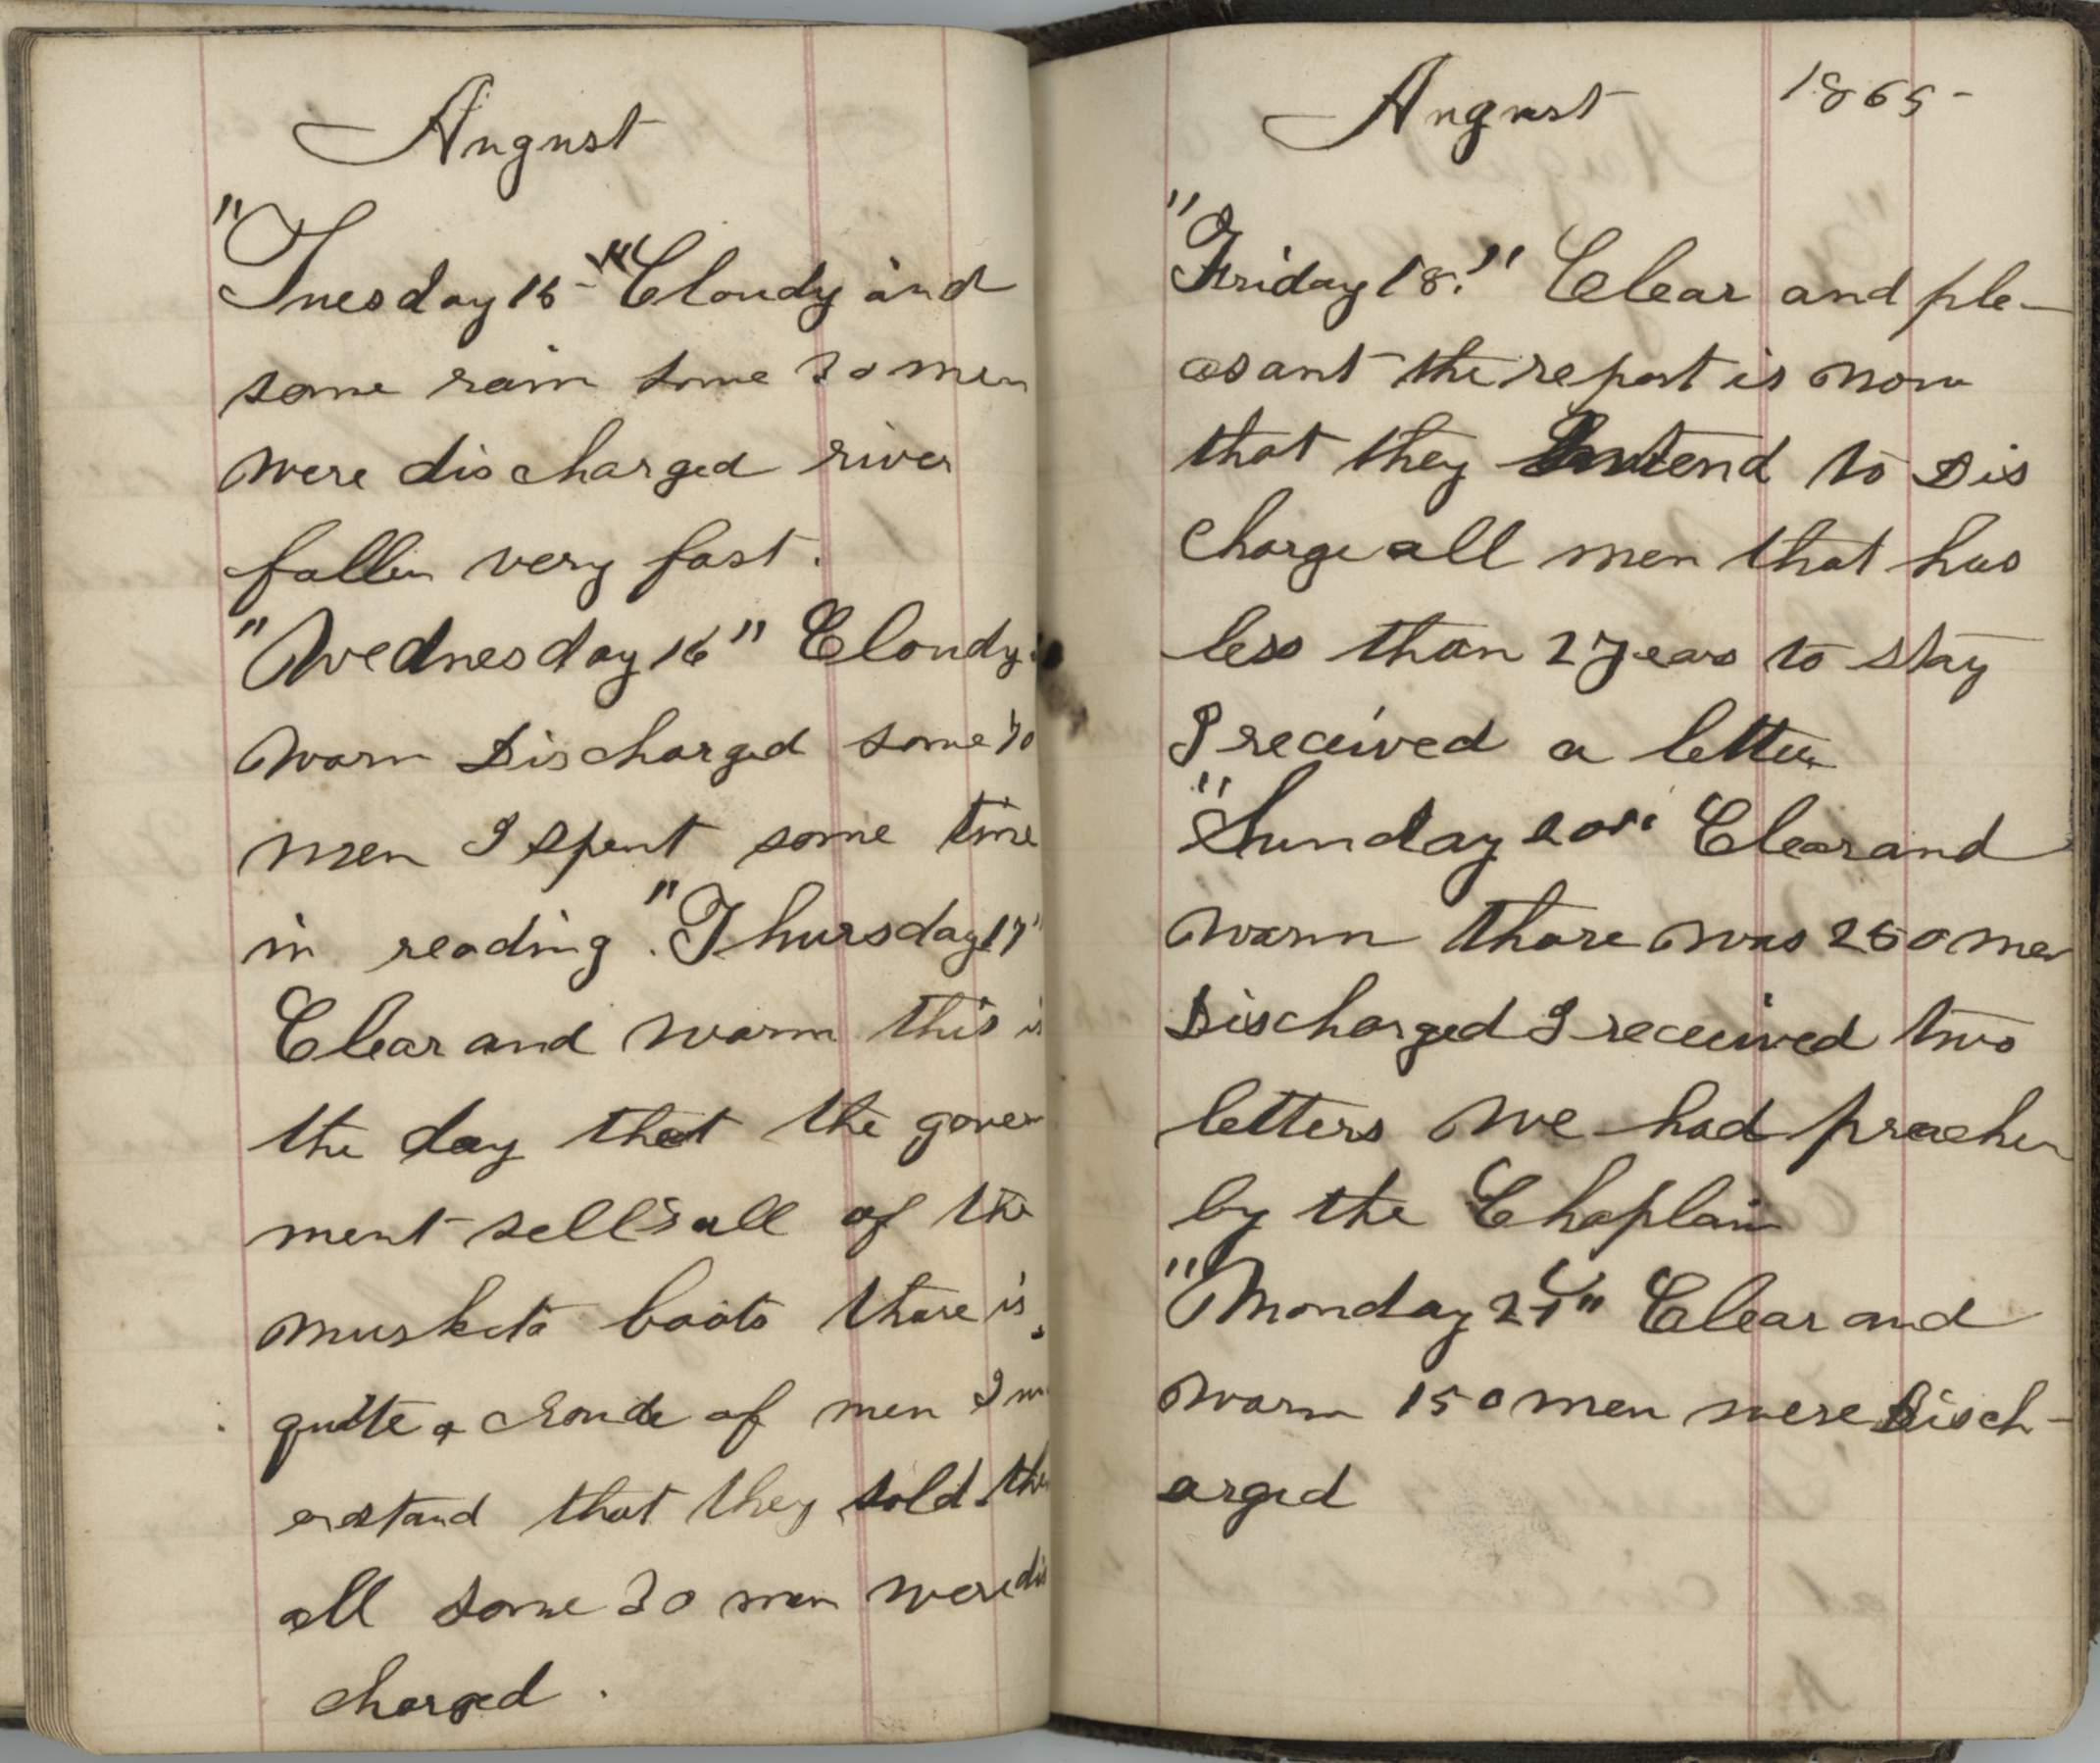 August
"Tuesday 15-" Cloudy and
some rain some 30 men
were discharged river
fallen very fast.
"Wednesday 16" Cloudy
warm Discharged some
men I spent some time
in reading. "Thursday 17"
Clear and warm this is
the day that the gover
ment sells all of the
muskits boats thare is
quite a croude of men I
erstand that they sold
all some 30 men were dis
charged.
August 1865-
"Friday 18." Clear and ple-
asant the report is now
that they Entend to Dis
charge all men that has
less than 2 years to stay
I received a letter
"Sunday 20" Clear and
warm thare was 250 men
Discharged I received two
letters we had preachen
by the Chaplain
"Monday 21" Clear and
warm 150 men were Disch-
arged